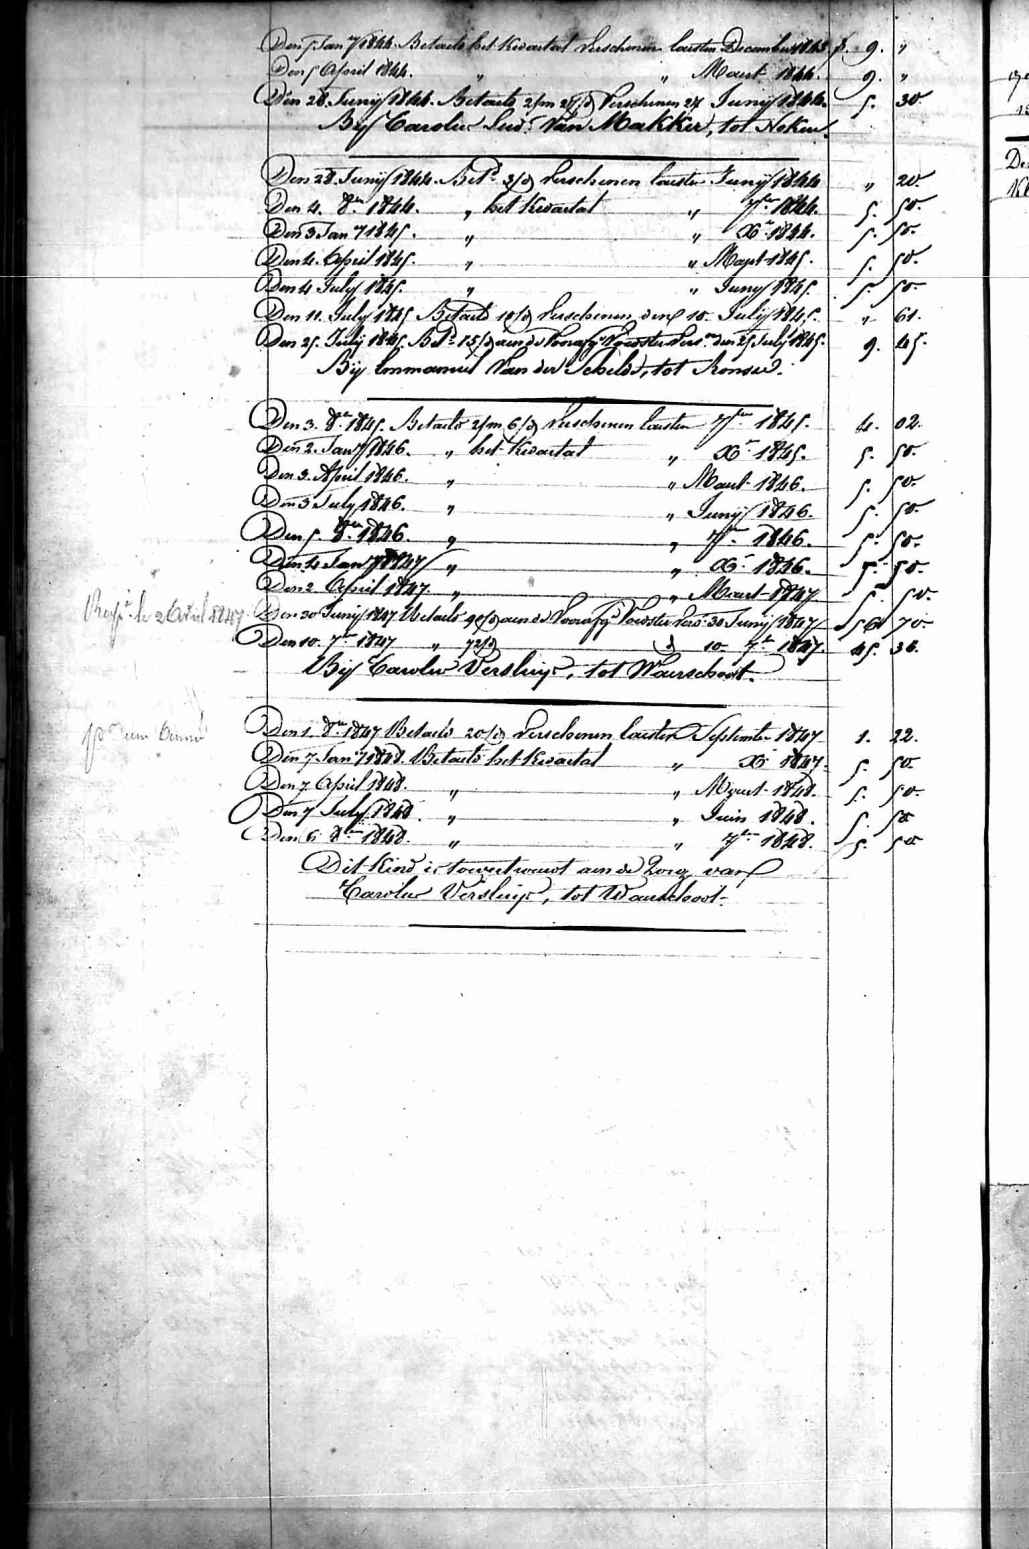 Den 5 Jan 7 1844 Betaeld het Kwartael Verschenen laesten December 1843 f. 9. "
Den 5 April 1844. " " Maert 1844. 9. "
Den 28 Junij 1844. Betaeld 2/m 28/d Verschenen 28 Junij 1844. 5. 30.
Bij Carolus Lud. Van Makker, tot
Den 28. Junij 1844. Betd 3/d Verschenen laesten Junij 1844 " 20.
Den 4. 8er 1844. " het Kwartael " 7ber 1844. 5. 50.
Den 3 Jan 7 1845. " " Xr 1844. 5. 50.
Den 4. April 1845. " " Maert 1845. 5. 50.
Den 4 July 1845. " " Junij 1845. 5. 50
Den 11. July 1845 Betaeld 10/d Verschenen den 10. July 1845. " 61.
Den 25. July 1845. Betd 15/d aen de Voorafge Voedster Vers. den 25 July 1845. 9. 45.
Bij Emmanuel Van der Schelde, tot Ronse.
Den 3. 8er 1845. Betaeld 2/m 6/d Verschenen laesten 7ber 1845. 4. 02.
Den 2. Jan 7 1846. " het Kwartael " Xr 1845. 5. 50.
Den 3. April 1846. " " Maert 1846. 5. 50.
Den 3 July 1846. " " Junij 1846. 5. 50
Den 5. 8er 1846. " " 7ber 1846. 5. 50.
Den 4 Jan 7 1847 " " Xr 1846. 5. 50.
Den 2 April 1847. " " Maert 1847 5. 50.
le 2 Avril 1847
Den 30 Junij 1847 Betaeld 90/d aen de Voorafge Voedster Vers. 30 Junij 1847 56 70
Den 10. 7er 1847 " 72/d d 10 7er 1847. 45. 36.
Bij Carolus Versluys, tot Waerschoot.
Den 1. 8er 1847 Betaeld 20/d Verschenen laesten September 1847 1. 22.
Den 7. Jan 7 1848. Betaeld het Kwartael " Xr 1847. 5. 50.
Den 7 April 1848. " " Maert 1848. 5. 50.
Den 7 July 1848. " " Juin 1848. 5. 50
Den 6 8er 1848. " " 7ber 1848. 5. 50
Dit Kind is toevertrouwt aen de Zorg van
Carolus Versluys, tot Waerschoot.